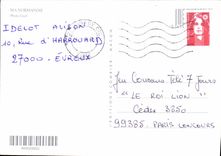 IDELOT ALISON
10, Rue d'HARROUARD
27000 - EVREUX
Jeu Concours Télé 7 Jours
"LE ROI LION"
Cedex 3250
99385 - PARIS CONCOURS